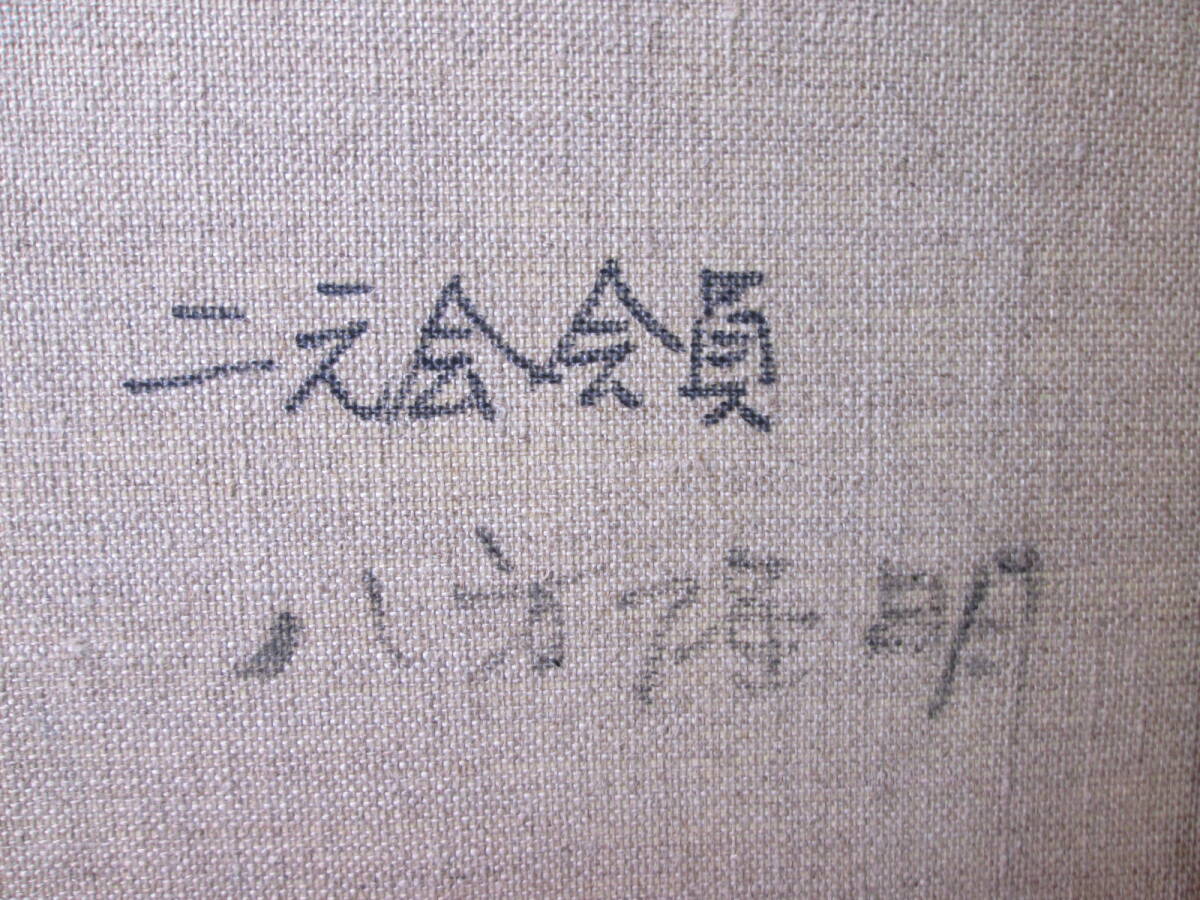 二元会会員
八方 明